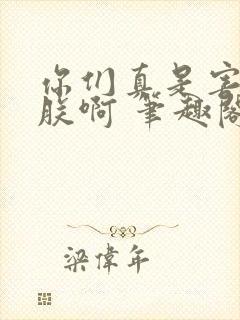 你们真是害
朕啊 筆趣阁
梁偉年